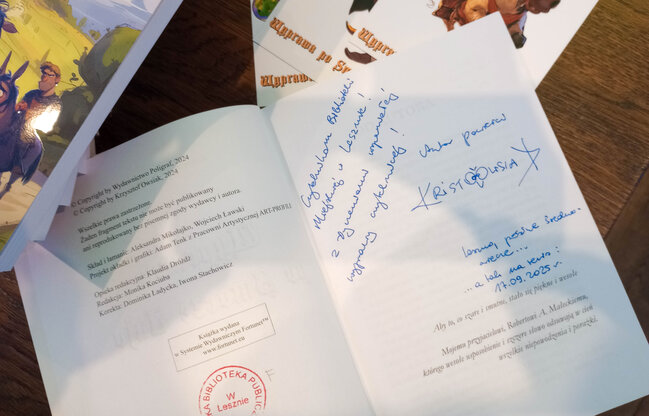 Wyprawa po S
Wypraw
Wypraw
© Copyright by Wydawnictwo Poligraf, 2024
© Copyright by Krzysztof Owsiak, 2024
Wszelkie prawa zastrzeżone.
Żaden fragment tekstu nie może być publikowany
ani reprodukowany bez pisemnej zgody wydawcy i autora.
Skład i łamanie: Aleksandra Mikołajko, Wojciech Ławski
Projekt okładki i grafiki: Adam Tenk z Pracowni Artystycznej ART-PROFIL
Opieka redakcyjna: Klaudia Dróżdż
Redakcja: Monika Kociuba
Korekta: Dominika Ładycka, Iwona Stachowicz
Książka wydana
w Systemie Wydawniczym Fortunet™
www.fortunet.eu
KA BIBLIOTEKA PUBLICZ
W
Lesznie
Czytelnikom Biblioteki
Miejskiej w Lesznie!
z życzeniami wspaniałej
wyprawy czytelniczej!
Autor powieści
KRISTOLISIA
Leszno, późne średnio-
wiecze...
...a tak na serio:
17.09.2025 r.
Aby to, co szare i smutne, stało się piękne i wesołe
Mojemu przyjacielowi, Robertowi A. Maleckiemu,
którego wesołe usposobienie i szczere słowo odsuwają w cień
wszelkie niepowodzenia i porażki.